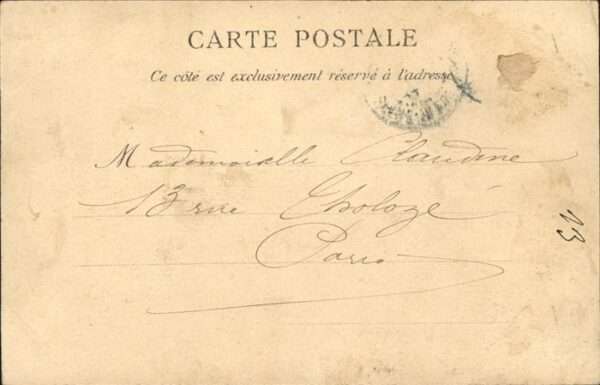 CARTE POSTALE
Ce côté est exclusivement réservé à l'adresse
Mademoiselle Claudine
13 rue Tholozé
Paris
23